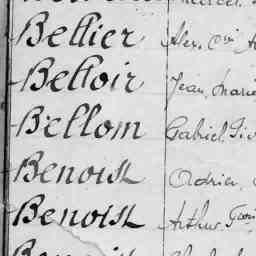 Bellier Alex. Cin
Belloir Jean Marie
Bellom Gabriel
Benoist Adrien
Benoist Arthur